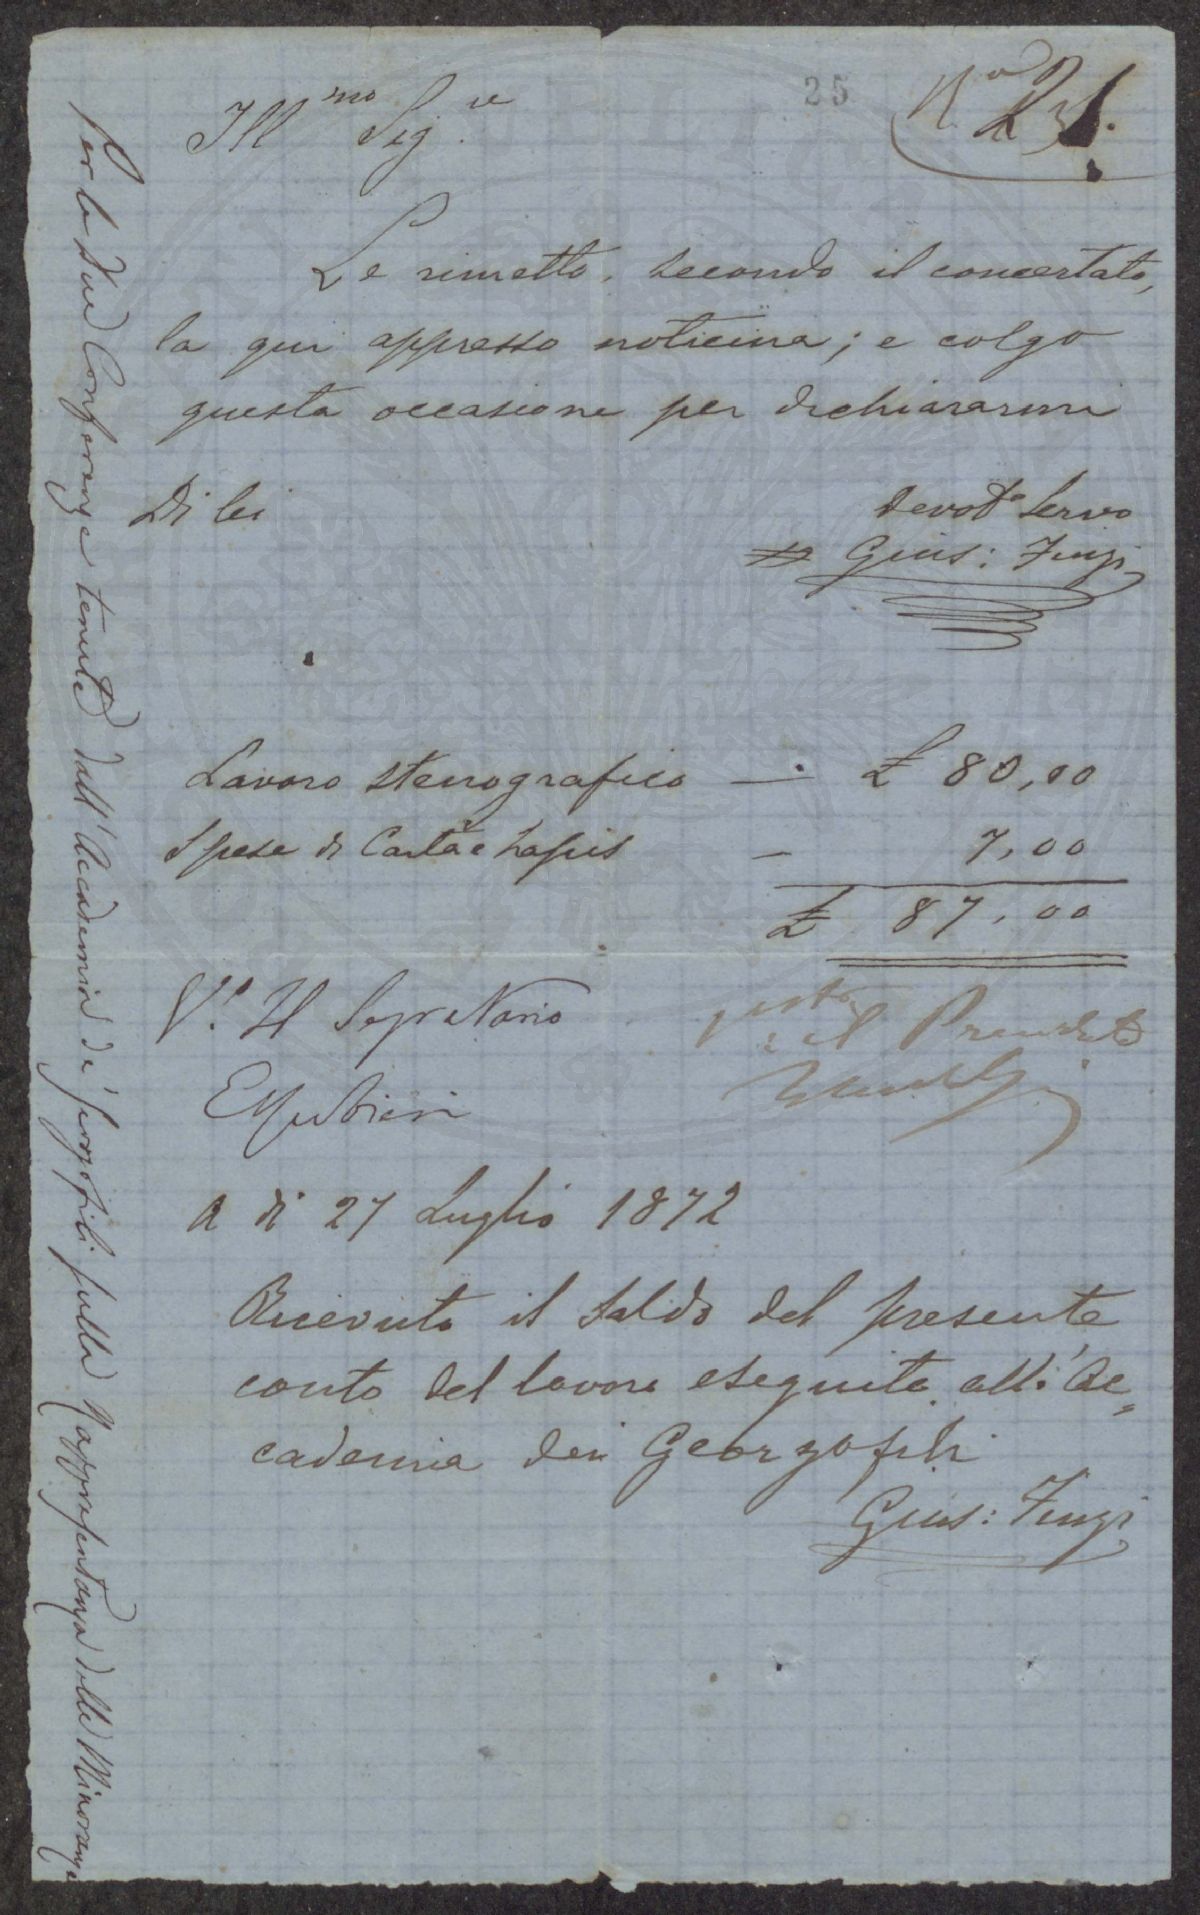 25
Nº 231.
Ill.mo Sig.re
Le rimetto, secondo il concertato,
la qui appresso noticina; e colgo
questa occasione per dichiararmi
Di lei
Devot.o Servo
Gius: Finzi
Lavoro stenografico — £ 80,00
Spese di Carta e Lapis — 7,00
£ 87,00
V.o Il Segretario
visto il Presidente
A dì 27 Luglio 1872
Ricevuto il saldo del presente
conto del lavoro eseguito all'Ac=
cademia dei Georgofili
Gius: Finzi
Per le due Conferenze tenute dall'Accademia de' Georgofili sulla Rappresentanza delle Minoranze